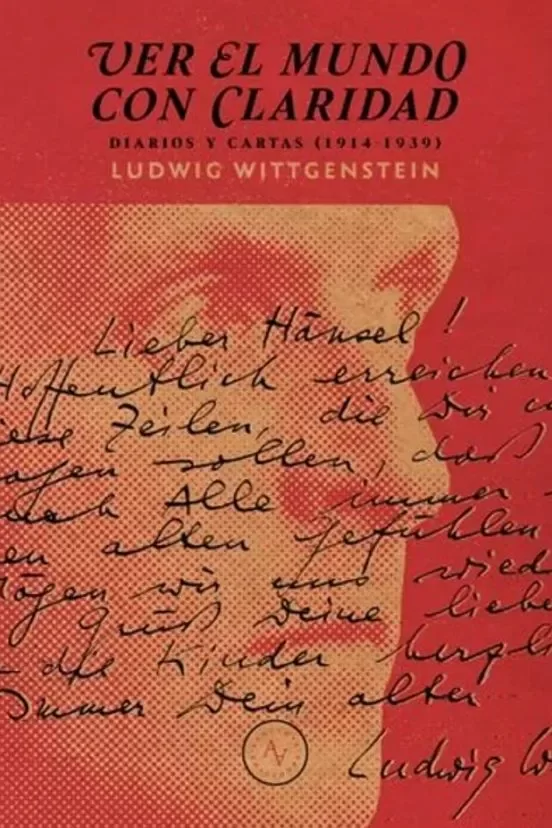 VER EL MUNDO
CON CLARIDAD
DIARIOS Y CARTAS (1914-1939)
LUDWIG WITTGENSTEIN
Lieber Hänsel!
Hoffentlich erreichen
iese Zeilen, die Dir
agen sollen, daß
euch Alle immer
en alten Gefühlen
Mögen wir uns wied
Grüß Deine liebe
die Kinder herzli
Immer Dein alter
Ludwig W
AV